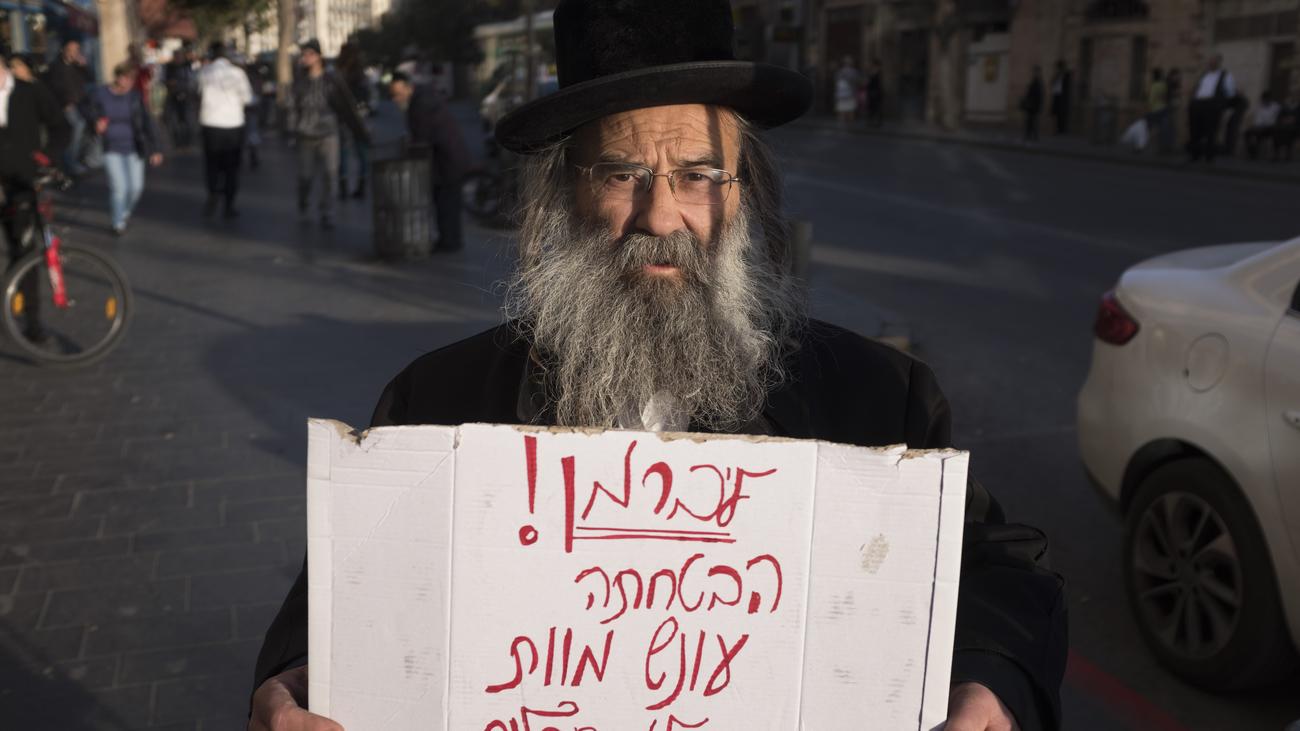 ליברמן!
הבטחתה
עונש מוות